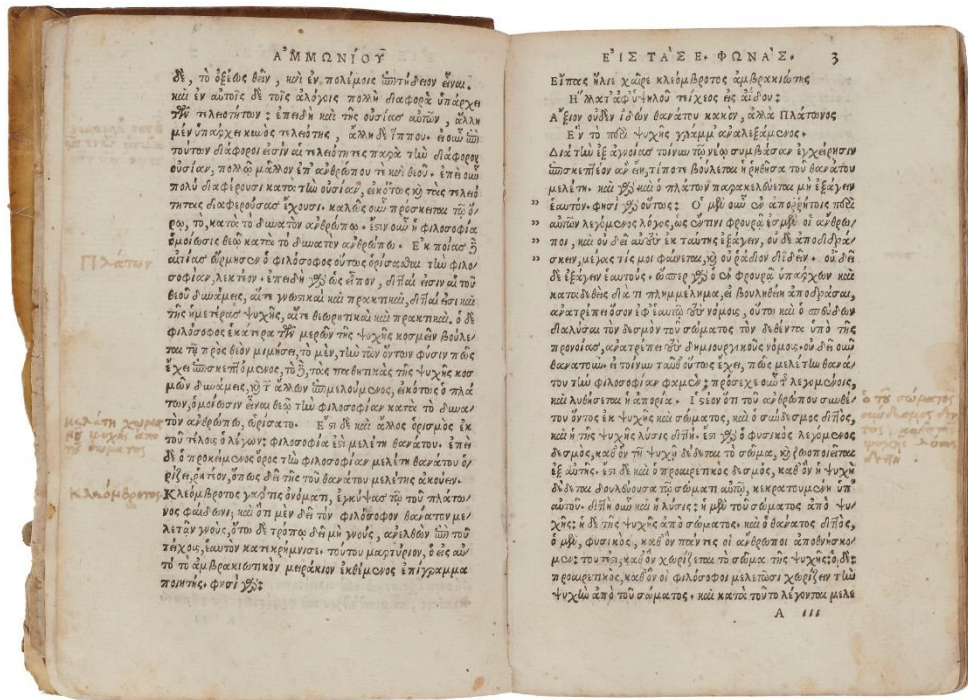 ἈΜΜΩΝΙΟΥ
δὲ, τὸ ὀξέως θεῖν, καὶ ἐν πολέμοις ἐπιτήδειον εἶναι.
καὶ ἐν αὐτοῖς δὲ τοῖς ἀλόγοις πολλὴ διαφορὰ ὑπάρχει
τῶν τελειοτήτων: ἐπειδὴ καὶ τῆς οὐσίας αὐτῶν, ἄλλη
μὲν ὑπάρχει κυνὸς τελειότης, ἄλλη δὲ ἵππου. εἰ οὖν ἐπὶ
τούτων διάφοροί εἰσιν αἱ τελειότητες παρὰ τὴν διάφορον
οὐσίαν, πολλῷ μᾶλλον ἐπ' ἀνθρώπου τε καὶ θεοῦ. ἐπεὶ οὖν
πολὺ διαφέρουσι κατὰ τὴν οὐσίαν, εἰκότως καὶ τὰς τελειό
τητας διαφερούσας ἔχουσι. καλῶς οὖν πρόσκειται τῷ ὅ-
ρῳ, τὸ, κατὰ τὸ δυνατὸν ἀνθρώπῳ. ἔστιν οὖν ἡ φιλοσοφία
ὁμοίωσις θεῷ κατὰ τὸ δυνατὸν ἀνθρώπῳ. Ἐκ ποίας δὲ
αἰτίας ὥρμησεν ὁ φιλόσοφος οὕτως ὁρίσασθαι τὴν φιλο-
σοφίαν, λεκτέον. ἐπειδὴ γὰρ ὡς εἶπον, διτταί εἰσιν αἱ τοῦ
θεοῦ δυνάμεις, αἵ τε γνωστικαὶ καὶ πρακτικαὶ, διτταί εἰσι καὶ
τῆς ἡμετέρας ψυχῆς, αἵ τε θεωρητικαὶ καὶ πρακτικαί. ὁ δὲ
φιλόσοφος ἑκάτερα τῶν μερῶν τῆς ψυχῆς κοσμεῖν βούλε-
ται τῇ πρὸς θεὸν μιμήσει, τὸ μὲν, τὴν τῶν ὄντων φύσιν πῶς
ἔχει ἐπισκεπτόμενος, τὸ δὲ, τὰς παθητικὰς τῆς ψυχῆς κοσ
μῶν δυνάμεις, καὶ τῶν ἄλλων ἐπιμελούμενος, εἰκότως ὁ πλά
των, ὁμοίωσιν εἶναι θεῷ τὴν φιλοσοφίαν κατὰ τὸ δυνα-
τὸν ἀνθρώπῳ, ὡρίσατο. Ἔστι δὲ καὶ ἄλλος ὁρισμὸς ἐκ
τοῦ τέλους ὁ λέγων; φιλοσοφία ἐστὶ μελέτη θανάτου. ἐπεὶ
δὲ ὁ προκείμενος ὅρος τὴν φιλοσοφίαν μελέτη θανάτου ὁ-
ρίζει, ῥητέον, ὅπως δεῖ τῆς τοῦ θανάτου μελέτης ἀκούειν.
Κλεόμβροτος γάρ τις ὀνόματι, ἐγκύψας τῷ τοῦ πλάτω-
νος φαίδωνι; καὶ ὅτι μὲν δεῖ τὸν φιλόσοφον θάνατον με-
λετᾶν γνοὺς, ὅτῳ δὲ τρόπῳ δεῖ μὴ γνοὺς, ἀνελθὼν ἐπὶ τοῦ
τείχους, ἑαυτὸν κατεκρήμνισε. τούτου μαρτύριον, ὁ εἰς αὐ-
τὸ τὸ ἀμβρακιωτικὸν μειράκιον ἐκθέμενος ἐπίγραμμα
ποιητής. φησὶ γάρ:
Πλάτων
Κλεόμβροτος
ΕἸΣ ΤᾺΣ Ε. ΦΩΝΆΣ. 3
Εἴπας ἥλιε χαῖρε κλεόμβροτος ἀμβρακιώτης
Ἥλατ' ἀφ' ὑψηλοῦ τείχεος εἰς ἀΐδου:
Ἄξιον οὐδὲν ἰδὼν θανάτου κακὸν, ἀλλὰ Πλάτωνος
Ἓν τὸ περὶ ψυχῆς γράμμ' ἀναλεξάμενος.
Διὰ τὴν ἐξ ἀγνοίας τοίνυν τῷ νέῳ συμβᾶσαν ἐγχείρησιν
ἐπισκεπτέον ἂν εἴη, τί ποτε βούλεται ἡ ῥηθεῖσα τοῦ θανάτου
μελέτη. καὶ γὰρ καὶ ὁ πλάτων παρακελεύεται μὴ ἐξάγειν
ἑαυτόν. φησὶ γὰρ οὕτως: Ὁ μὲν οὖν ἐν ἀπορρήτοις περὶ
„ αὐτῶν λεγόμενος λόγος, ὡς ἔν τινι φρουρᾷ ἐσμὲν οἱ ἄνθρω-
„ ποι, καὶ οὐ δεῖ αὑτὸν ἐκ ταύτης ἐξάγειν, οὐδὲ ἀποδιδρά-
„ σκειν, μέγας τίς μοι φαίνεται, καὶ οὐ ῥᾴδιον διιδεῖν. οὐ δεῖ
δὲ ἐξάγειν ἑαυτούς. ὥσπερ γὰρ ὁ ἐν φρουρᾷ ὑπάρχων καὶ
καταδεθεὶς διά τι πλημμέλημα, εἰ βουληθείη ἀποδρᾶσαι,
ἀνατρέπει ὅσον ἐφ' ἑαυτῷ τοὺς νόμους, οὕτω καὶ ὁ σπεύδων
διαλῦσαι τὸν δεσμὸν τοῦ σώματος τὸν δεθέντα ὑπὸ τῆς
προνοίας, ἀνατρέπει τοὺς δημιουργικοὺς νόμους. οὐ δεῖ οὖν
θανατοῦν. εἰ τοίνυν ταῦθ' οὕτως ἔχει, πῶς μελέτην θανά-
του τὴν φιλοσοφίαν φαμέν; πρόσεχε οὖν τοῖς λεγομένοις,
καὶ λυθήσεταί σοι ἡ ἀπορία. Ἰστέον ὅτι τοῦ ἀνθρώπου συνθέ-
του ὄντος ἐκ ψυχῆς καὶ σώματος, καὶ ὁ σύνδεσμος διττὸς,
καὶ ἡ τῆς ψυχῆς λύσις διττή. ἔστι γὰρ ὁ φυσικὸς λεγόμενος
δεσμὸς, καθ' ὃν τῇ ψυχῇ δέδεται τὸ σῶμα, καὶ ζωοποιεῖται
ἐξ αὐτῆς. ἔστι δὲ καὶ ὁ προαιρετικὸς δεσμὸς, καθ' ὃν ἡ ψυχὴ
δέδεται δουλεύουσα τῷ σώματι αὐτῷ, κεκρατουμένη ὑπ'
αὐτοῦ. διττὴ οὖν καὶ ἡ λύσις: ἡ μὲν τοῦ σώματος ἀπὸ ψυ-
χῆς: ἡ δὲ τῆς ψυχῆς ἀπὸ σώματος. καὶ ὁ θάνατος διττὸς,
ὁ μὲν, φυσικὸς, καθ' ὃν πάντες οἱ ἄνθρωποι ἀποθνήσκο-
μεν: τουτέστι, καθ' ὃν χωρίζεται τὸ σῶμα τῆς ψυχῆς: ὁ δὲ:
προαιρετικὸς, καθ' ὃν οἱ φιλόσοφοι μελετῶσι χωρίζειν τὴν
ψυχὴν ἀπὸ τοῦ σώματος. καὶ κατὰ τοῦτο λέγονται μελε
A iii
ὁ τοῦ σώματος